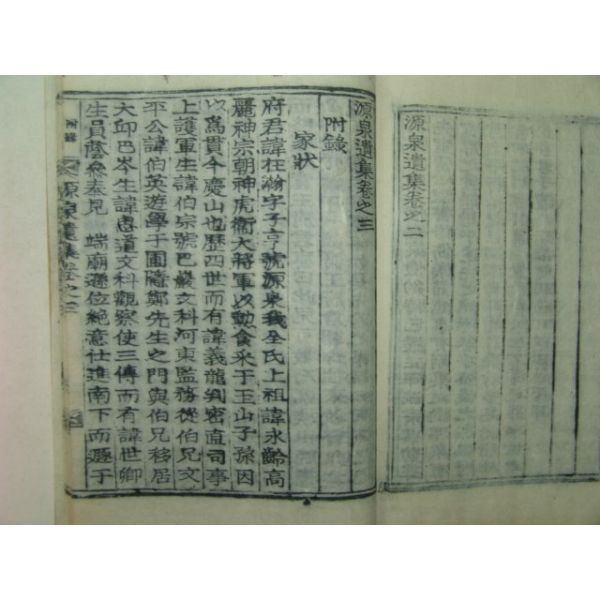 源泉遺集卷之二
源泉遺集卷之三
附錄
家狀
府君諱在瀚字子亨號源泉我全氏上祖諱永齡高
麗神宗朝神虎衛大將軍以勳食采于玉山子孫因
以爲貫今慶山也歷四世而有諱義龍判密直司事
上護軍生諱伯宗號巴巖文科河東監務從伯兄文
平公諱伯英遊學于圃隱鄭先生之門與伯兄移居
大邱巴岑生諱惠道文科觀察使三傳而有諱世卿
生員蔭參奉見 端廟遜位絶意仕進南下而遯于
附錄
源泉遺集卷之三